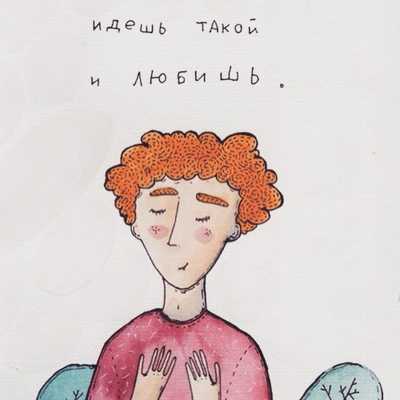 идешь такой
и любишь.